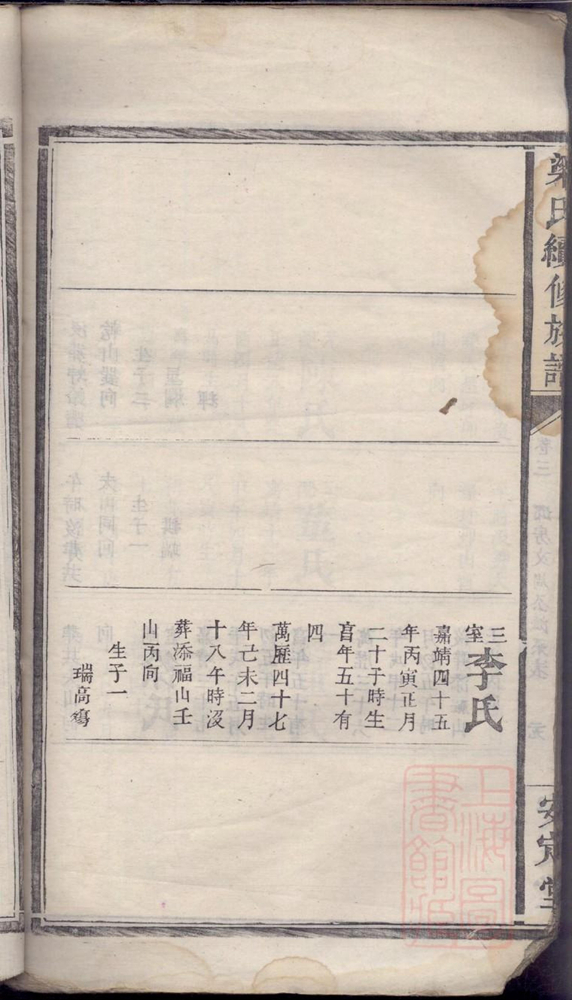 梁氏續修族譜
卷三
安定堂
三室李氏
嘉靖四十五
年丙寅正月
二十子時生
享年五十有
四
萬歷四十七
年己未二月
十八午時沒
葬添福山壬
山丙向
生子一
瑞高
上海圖書館藏